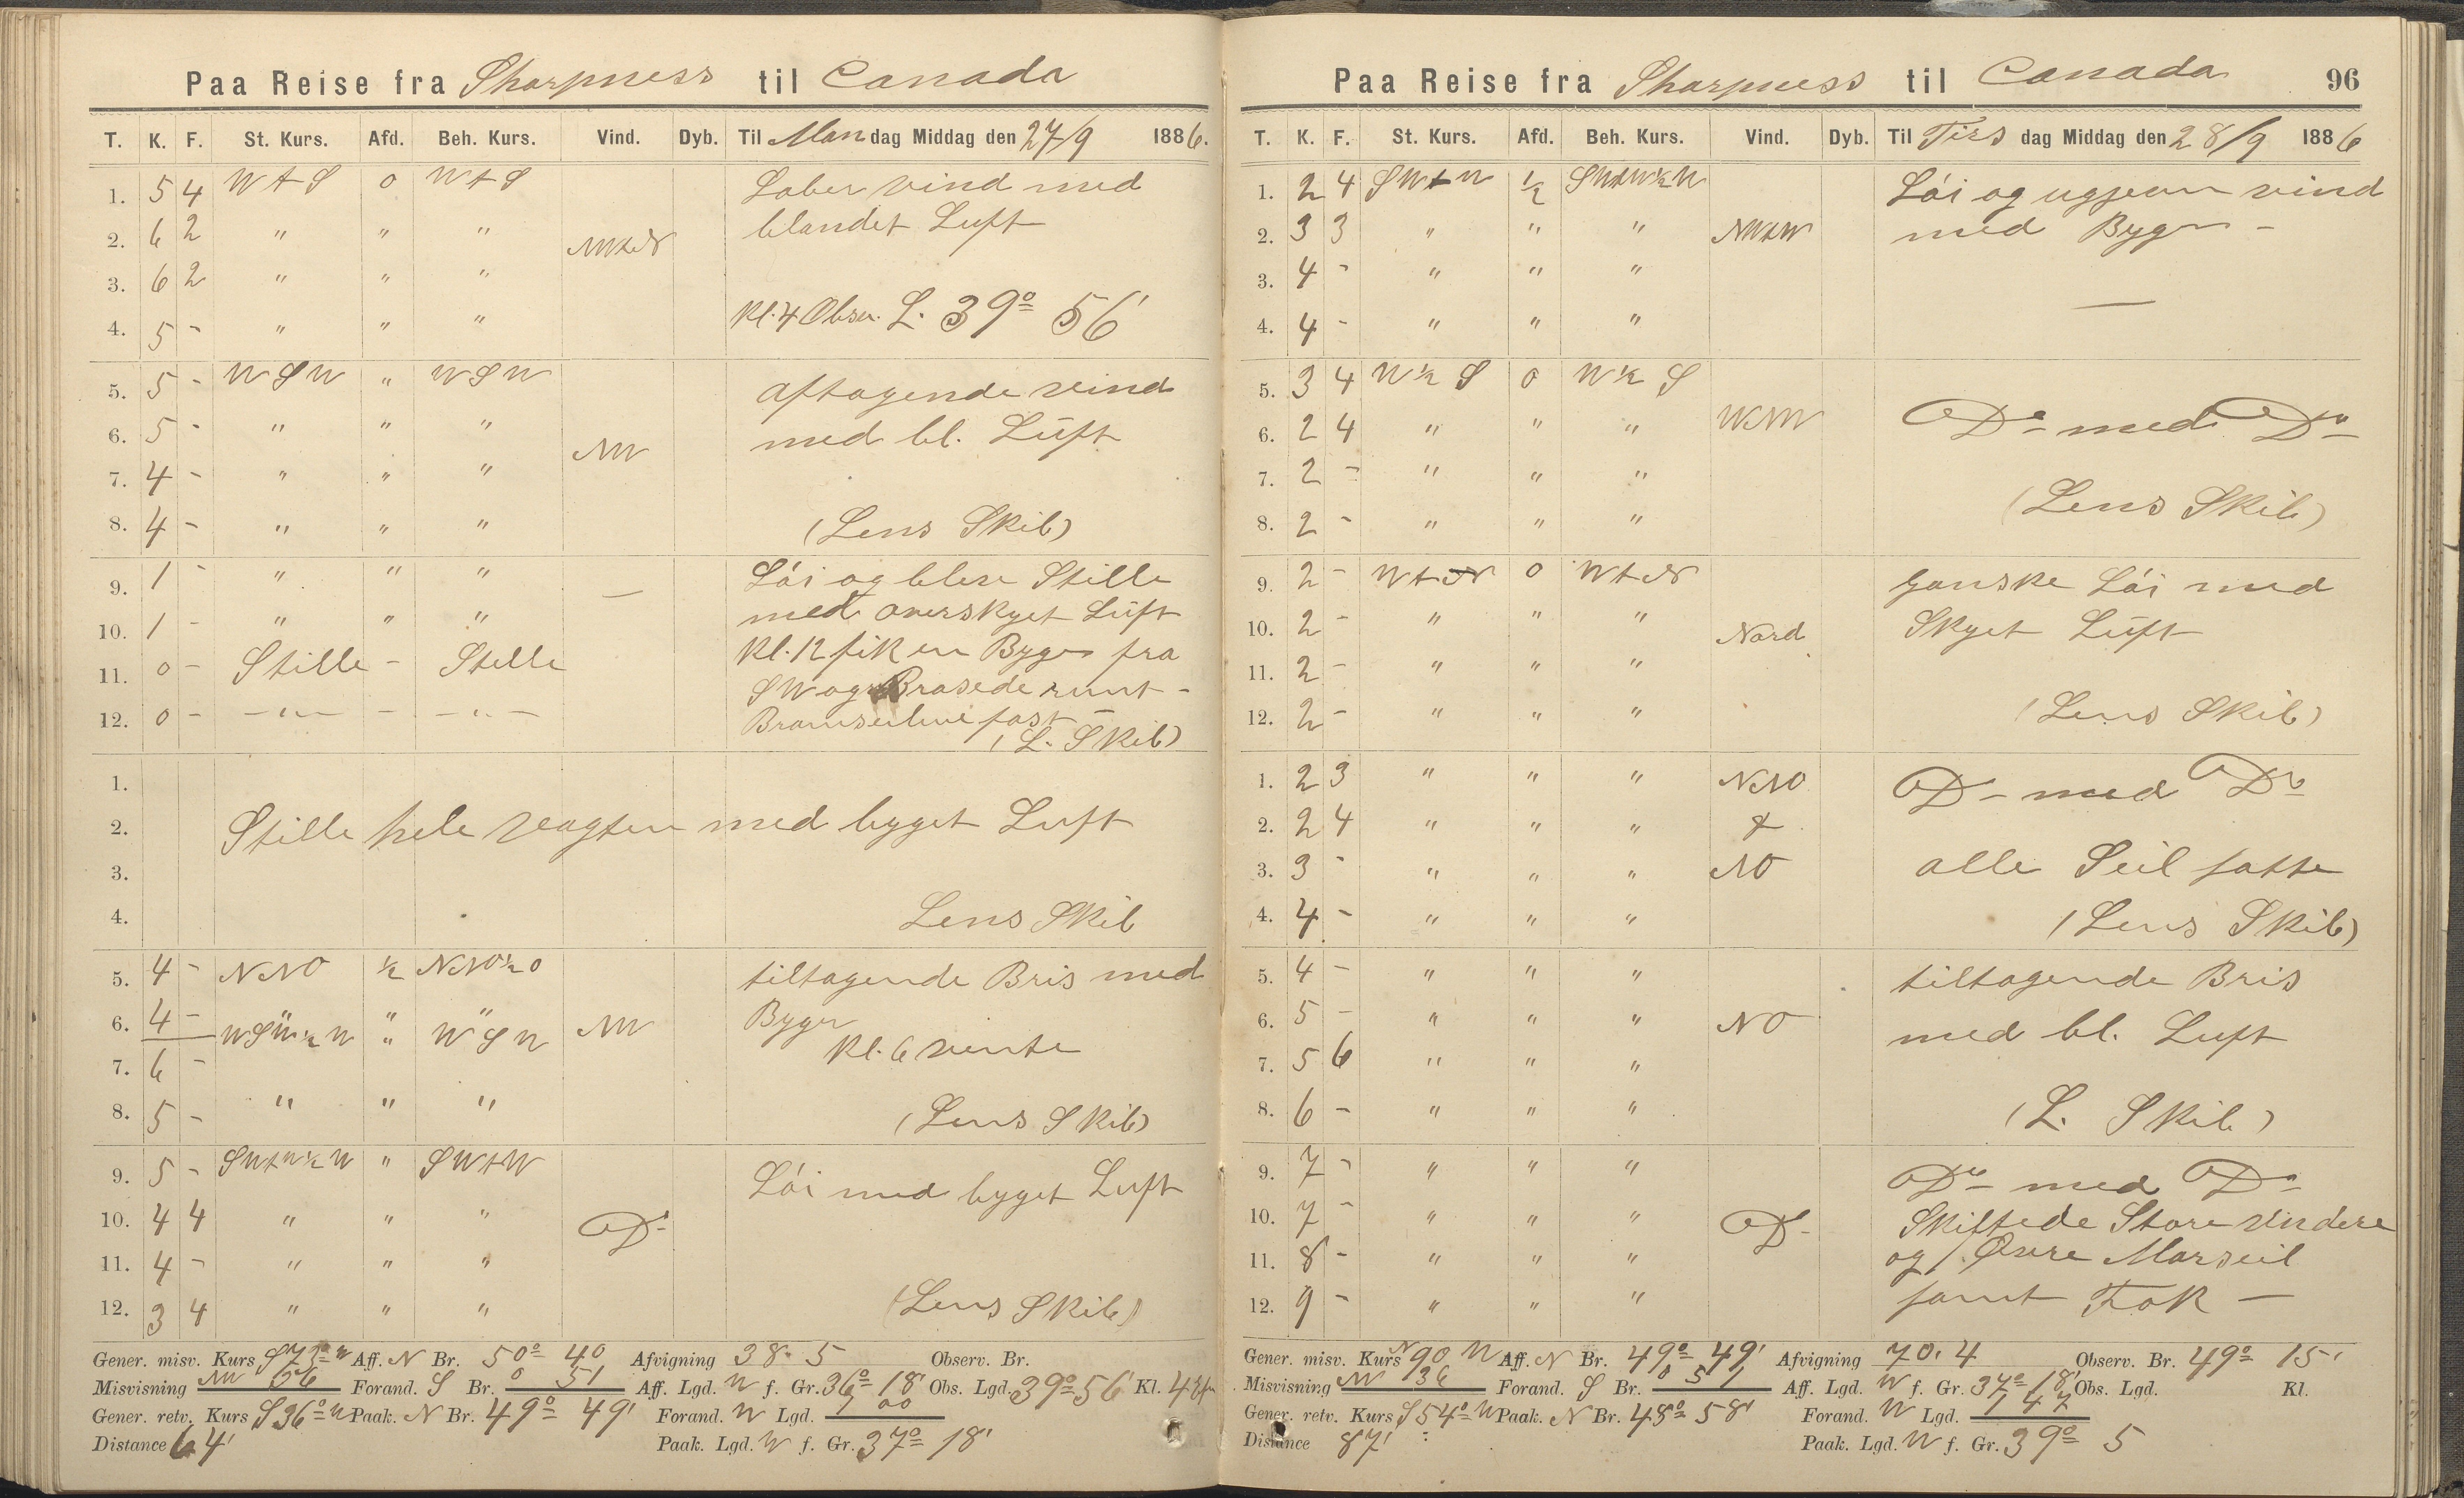 Paa Reise fra Sharpness til Canada
T. K. F. St. Kurs. Afd. Beh. Kurs. Vind. Dyb. Til Mandag Middag den 27/9 1886.
1. 5 4 WtS 0 WtS Laber vind med
2. 6 2 " " " NWtN blandet Luft
3. 6 2 " " "
4. 5 - " " " Kl. 4 Obser. L. 39° 56'
5. 5 - WSW " WSW aftagende vind
6. 5 - " " " NW med bl. Luft
7. 4 - " " "
8. 4 - " " " (Lens Skib)
9. 1 - " " " — Löi og blev Stille
10. 1 - " " " med overskyet Luft
11. 0 - Stille - Stille Kl. 12 fik en Byge fra
SW og Brasede runt -
12. 0 - -"- - -"- Bramseilene fast -
(L. Skib)
1.
2. Stille hele vagten med byget Luft
3.
4. Lens Skib
5. 4 - NNO ½ NNO½O tiltagende Bris med
6. 4 - " " " NW Byger
WSW½W " WSW Kl. 6 vente
7. 6 -
8. 5 - " " " (Lens Skib)
9. 5 - SWtW½W " SWtW Löi med byget Luft
10. 4 4 " " " D°
11. 4 - " " "
12. 3 4 " " " (Lens Skib)
Gener. misv. Kurs S 73° W Aff. N Br. 50° 40 Afvigning 38. 5 Observ. Br.
Misvisning NW Forand. S Br. 0 51 Aff. Lgd. W f. Gr. 36° 18' Obs. Lgd. 39° 56' Kl. 4
Gener. retv. Kurs S 36° W Paak. N Br. 49° 49' Forand. W Lgd. 1 00
Distance 64' Paak. Lgd. W f. Gr. 37° 18'
Paa Reise fra Sharpness til Canada 96
T. K. F. St. Kurs. Afd. Beh. Kurs. Vind. Dyb. Til Tirsdag Middag den 28/9 1886
1. 2 4 SWtW ½ SWtW½W Löi og ugjevn vind
2. 3 3 " " " NWtW med Byger -
3. 4 - " " "
4. 4 - " " " —
5. 3 4 W½S 0 W½S
6. 2 4 " " " WNW D° med D°
7. 2 - " " "
8. 2 - " " " (Lens Skib)
9. 2 - WtN 0 WtN ganske Löi med
10. 2 - " " " Nord Skyet Luft
11. 2 - " " "
12. 2 - " " " (Lens Skib)
1. 2 3 " " " NNO D° med D°
2. 2 4 " " " &
3. 3 - " " " NO alle Seil satte
4. 4 - " " " (Lens Skib)
5. 4 - " " " tiltagende Bris
6. 5 - " " " NO med bl. Luft
7. 5 6 " " "
8. 6 - " " " (L. Skib)
9. 7 - " " " D° med D°
10. 7 - " " " D° Skiftede Store Undere
11. 8 - " " " og Övre Marseil
12. 9 - " " " samt Fok —
Gener. misv. Kurs N 90 W Aff. N Br. 49° 49' Afvigning 70. 4 Observ. Br. 49° 15'
Misvisning NW 36 Forand. S Br. 0 51 Aff. Lgd. W f. Gr. 37° 18' Obs. Lgd. Kl.
Gener. retv. Kurs S 54° W Paak. N Br. 48° 58' Forand. W Lgd. 1 47
Distance 87' Paak. Lgd. W f. Gr. 39° 5